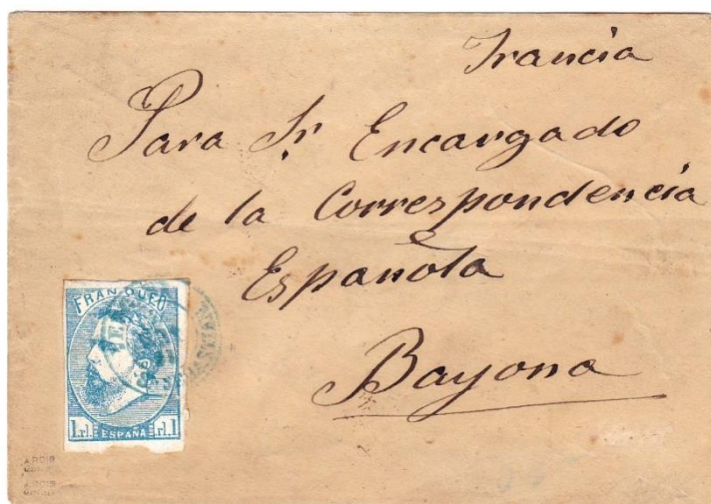 Francia
Para Sr Encargado
de la Correspondencia
Española
Bayona
FRANQUEO
1 rl. ESPAÑA rl. 1